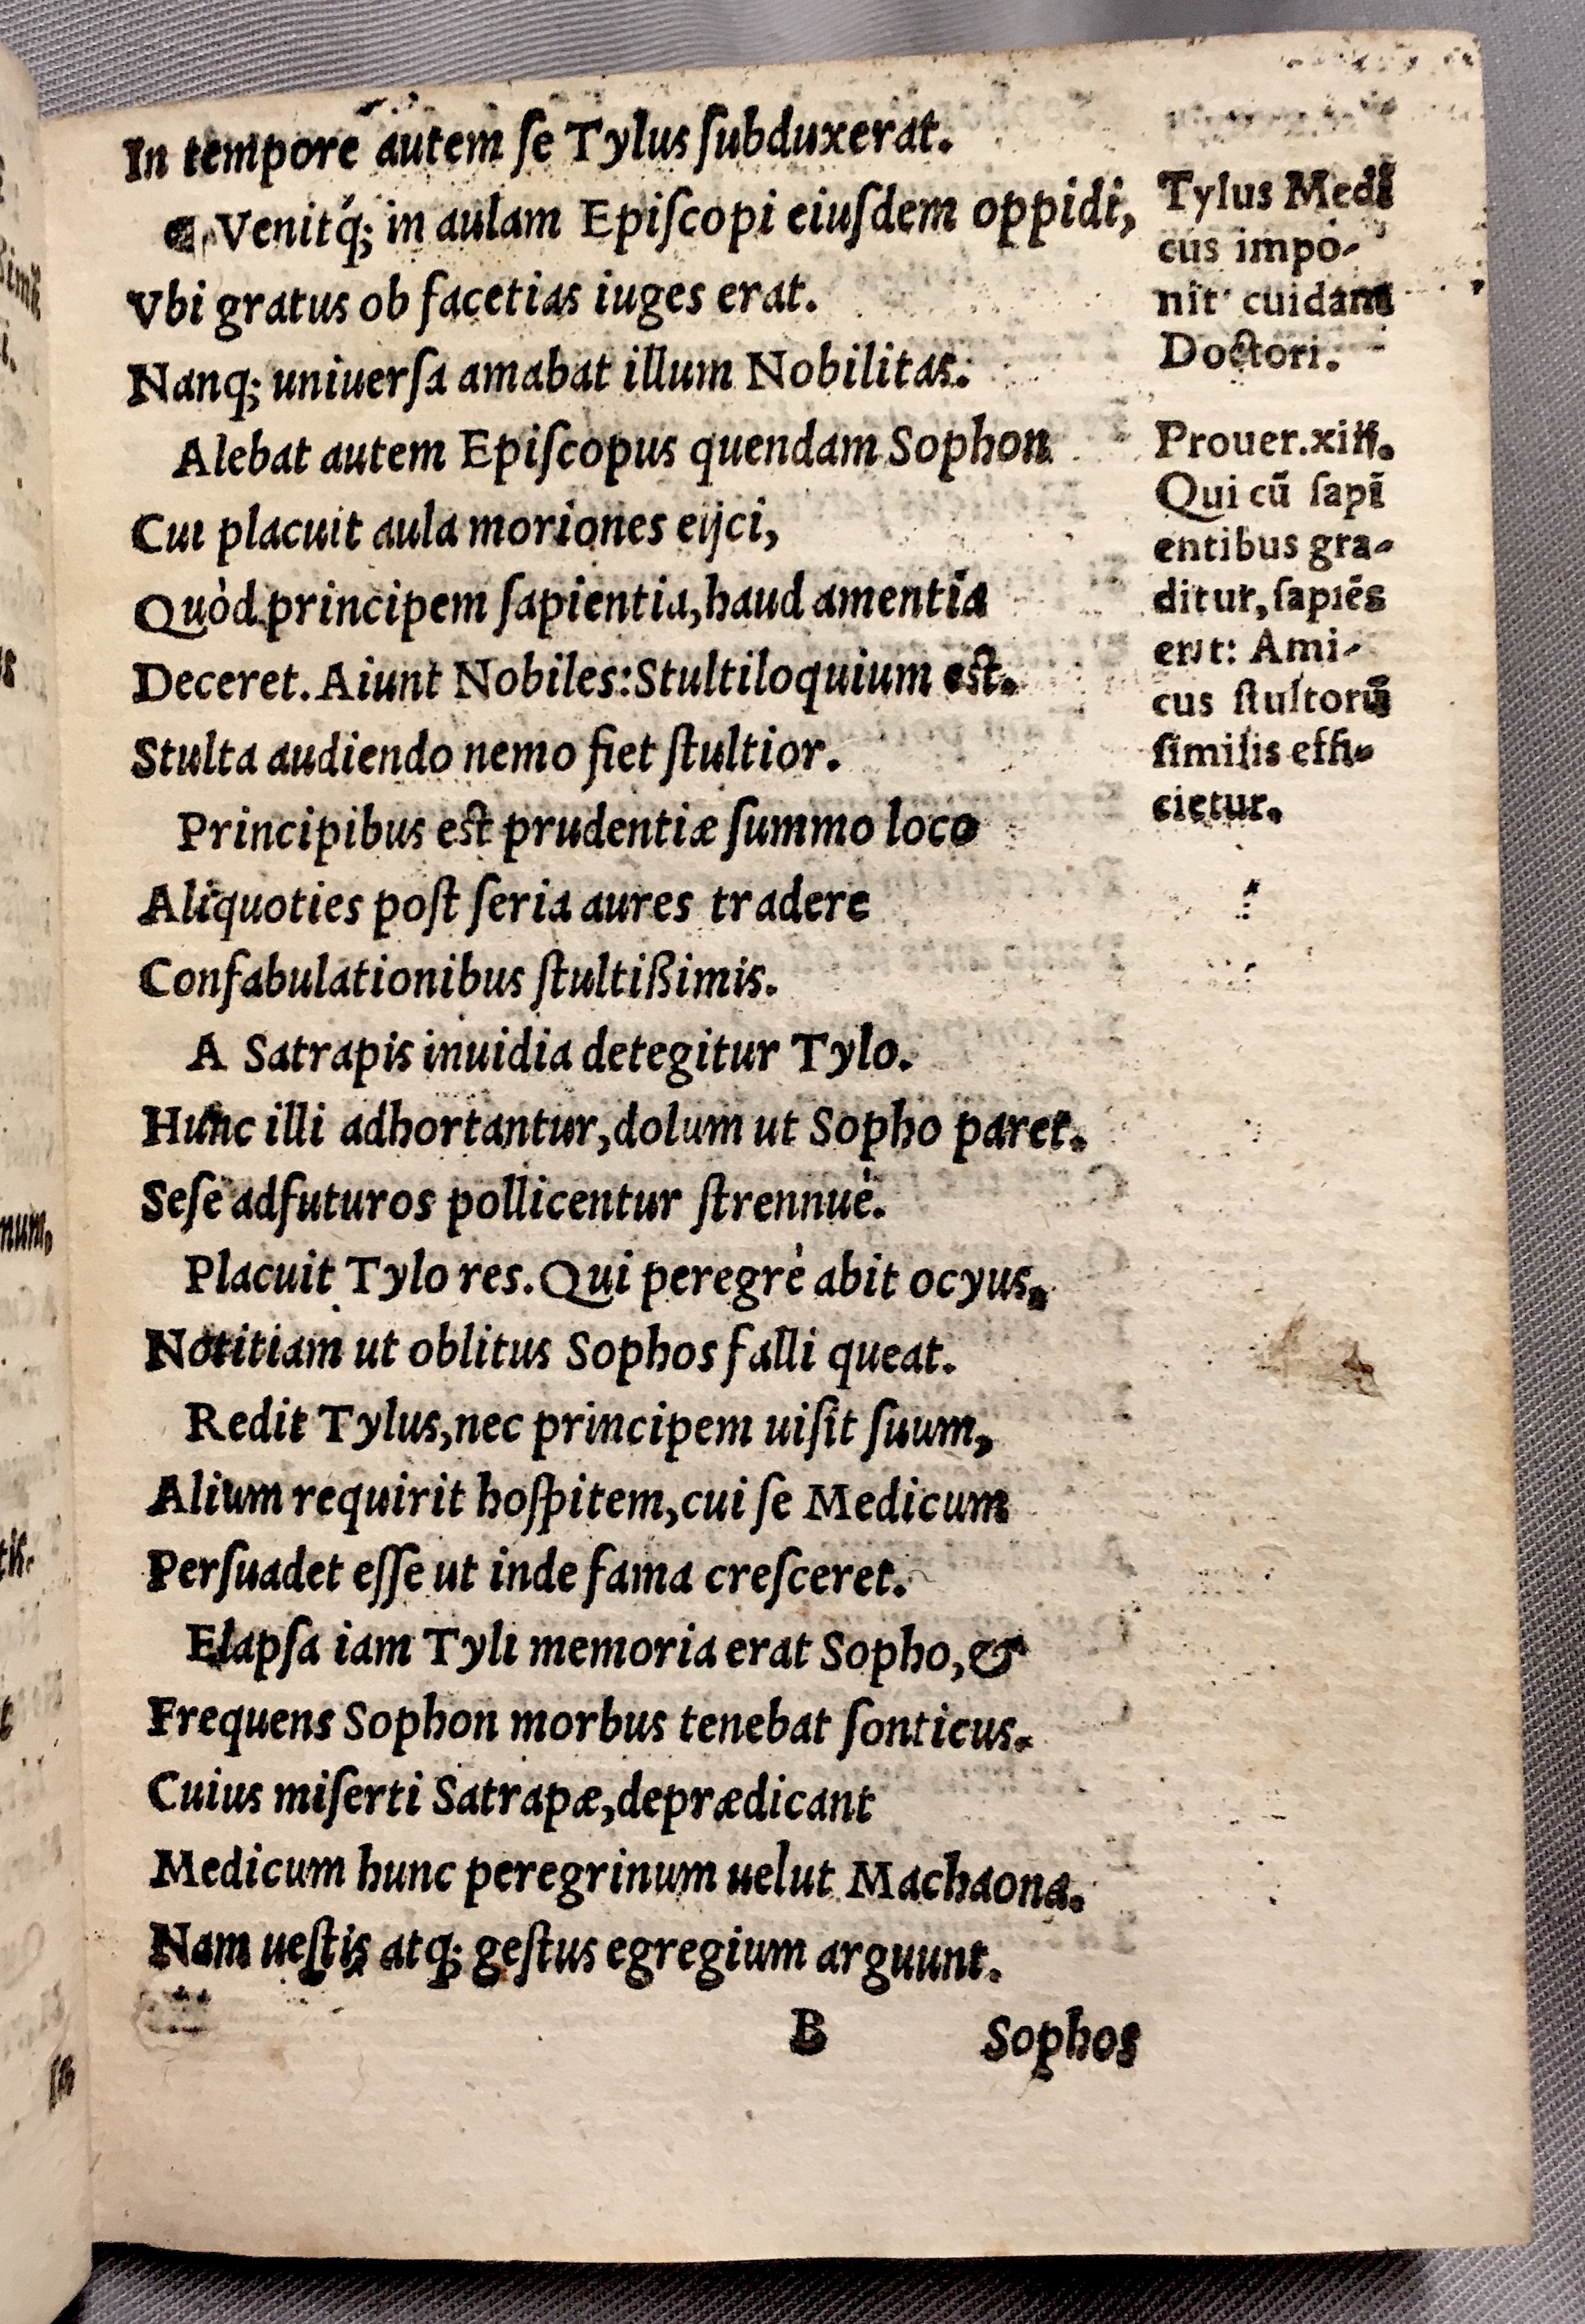 In tempore autem ſe Tylus ſubduxerat.
¶ Venitq́; in aulam Epiſcopi eiuſdem oppidi,
Vbi gratus ob facetias iuges erat.
Nanq; uniuerſa amabat illum Nobilitas.
Alebat autem Epiſcopus quendam Sophon
Cui placuit aula moriones eijci,
Quòd principem ſapientia, haud amentia
Deceret. Aiunt Nobiles: Stultiloquium est.
Stulta audiendo nemo fiet ſtultior.
Principibus est prudentiæ ſummo loco
Aliquoties poſt ſeria aures tradere
Confabulationibus ſtultißimis.
A Satrapis inuidia detegitur Tylo.
Hunc illi adhortantur, dolum ut Sopho paret.
Seſe adfuturos pollicentur ſtrennuè.
Placuit Tylo res. Qui peregrè abit ocyus,
Notitiam ut oblitus Sophos falli queat.
Redit Tylus, nec principem uiſit ſuum,
Alium requirit hoſpitem, cui ſe Medicum
Perſuadet eſſe ut inde fama creſceret.
Elapſa iam Tyli memoria erat Sopho, &
Frequens Sophon morbus tenebat ſonticus.
Cuius miſerti Satrapæ, deprædicant
Medicum hunc peregrinum uelut Machaona.
Nam ueſtis atq; geſtus egregium arguunt.
B Sophos
Tylus Medi
cus impo-
nit cuidam
Doctori.
Prouer. xiij.
Qui cū ſapi
entibus gra-
ditur, ſapiēs
erit: Ami-
cus ſtultorū
ſimilis effi-
cietur.
num,
tis.